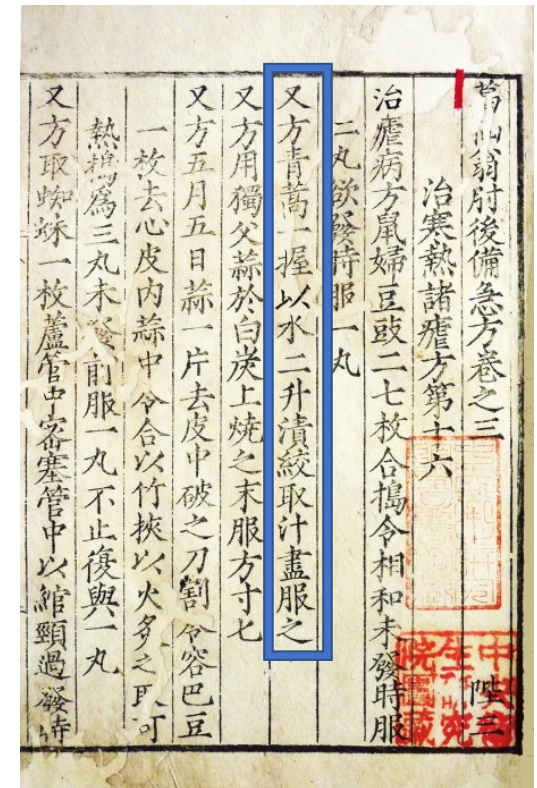 葛仙翁肘後備急方卷之三 陛三
治寒熱諸瘧方第十六
治瘧病方鼠婦豆豉二七枚合搗令相和未發時服
二丸欲發時服一丸
又方青蒿一握以水二升漬絞取汁盡服之
又方用獨父蒜於白炭上燒之末服方寸匕
又方五月五日蒜一片去皮中破之刀割令容巴豆
一枚去心皮内蒜中令合以竹挾以火炙之取可
熱搗爲三丸未發前服一丸不止復與一丸
又方取蜘蛛一枚蘆管中密塞管中以綰頸過發時